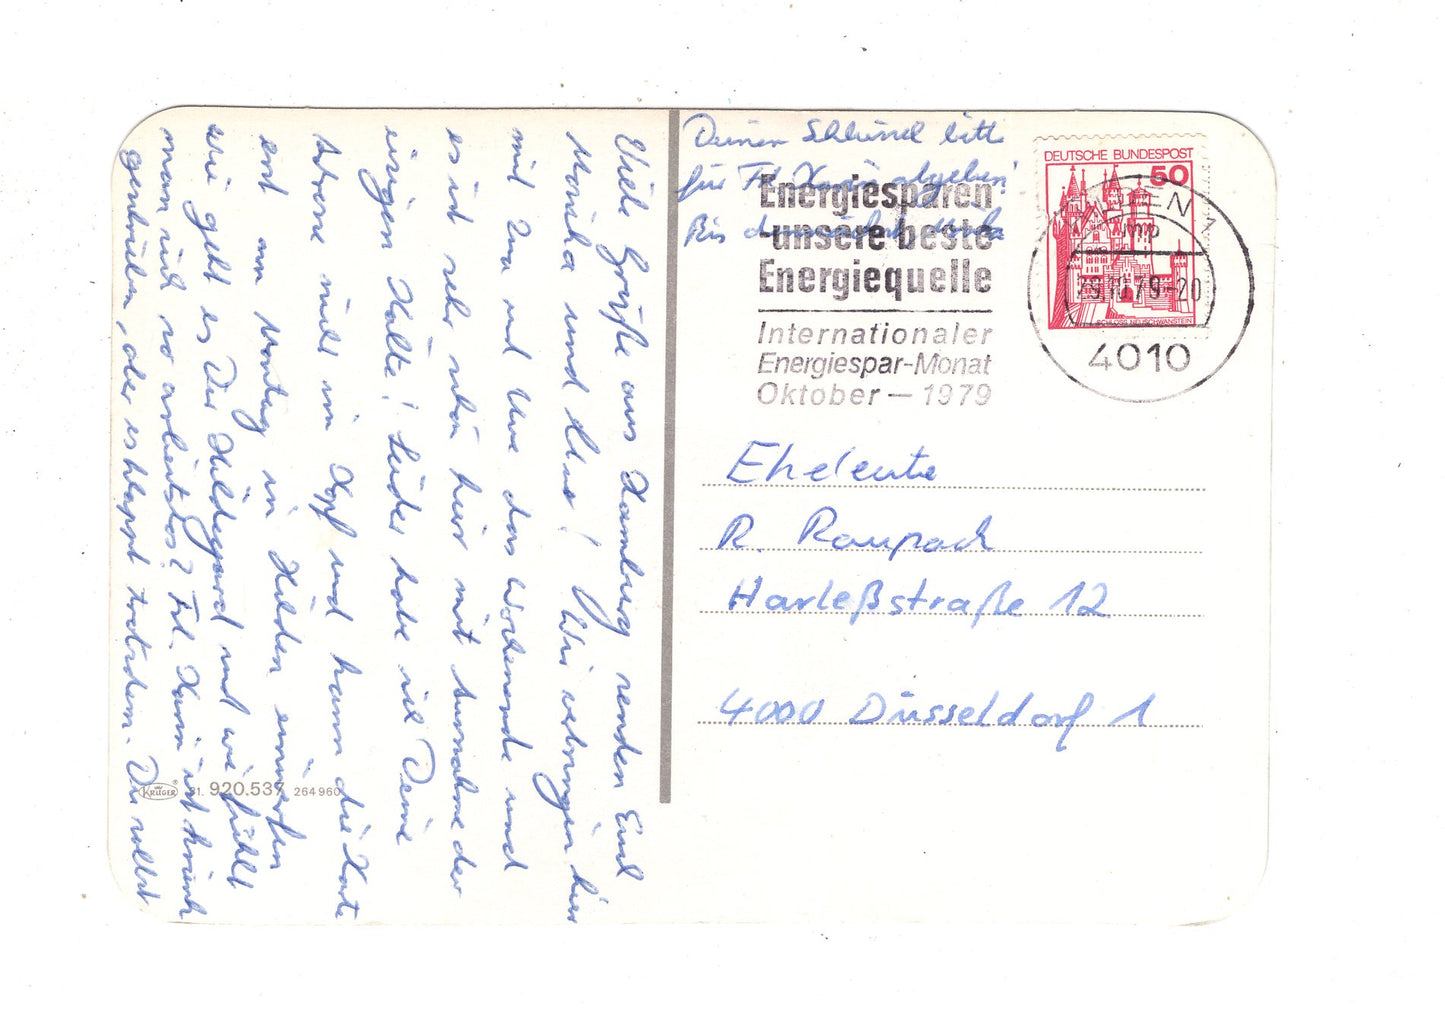 Viele Grüße aus Hamburg senden Euch
Monika und Klaus! Wir verbringen hier
mit und Uwe das Wochenende und
es ist sehr schön hier mit Ausnahme der
eisigen Kälte! Leider habe ich Deine
Adresse nicht im Kopf und kann die Karte
erst am Montag in Hilden einwerfen
Wie geht es Dir Hildegard und wie fühlt
man sich so arbeitslos? Frl. ist krank
geschrieben, aber es klappt trotzdem. Du sollst
Deinen Schlüssel bitte
für Frl. abgeben!
Bis demnächst
DEUTSCHE BUNDESPOST
50
SCHLOSS NEUSCHWANSTEIN
Energiesparen
-unsere beste
Energiequelle
Internationaler
Energiespar-Monat
Oktober – 1979
HILDEN 1
mp
29.10.79-20
4010
Eheleute
R. Raupach
Harleßstraße 12
4000 Düsseldorf 1
KRÜGER® 81. 920.537 264960